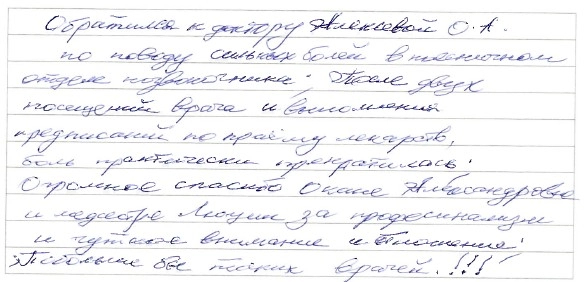 Обратился к доктору Алексеевой О.А.
по поводу сильных болей в поясничном
отделе позвоночника. После двух
посещений врача и выполнения
предписаний по приёму лекарств,
боль практически прекратилась.
Огромное спасибо Александровне
и медсестре Люции за професинализм
и чуткое внимание и отношение!
Побольше бы таких врачей.!!!